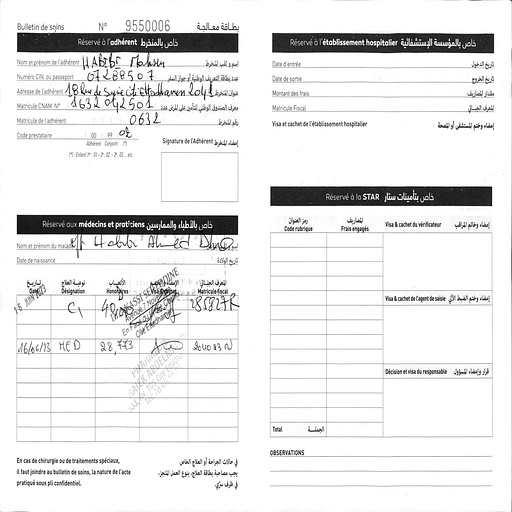 Bulletin de soins N° 9550006 بطاقة معالجة
Réservé à l'adhérent خاص بالمنخرط
Nom et prénom de l'adhérent HABIBI Mohsen اسم و لقب المنخرط
Numéro CIN ou passeport 07288507 عدد بطاقة التعريف الوطنية أو جواز السفر
Adresse de l'adhérent 2041 عنوان المنخرط
Matricule CNAM N° 1632042501 معرف الصندوق الوطني للتأمين على المرض عدد
Matricule de l'adhérent 0632 رقم المنخرط
Code prestataire 00 99 02
Adhérent Conjoint (*)
(*) : Enfant 1er : 01 - 2e : 02 - 3e : 03 ... etc
Signature de l'Adhérent إمضاء المنخرط
Réservé aux médecins et praticiens خاص بالأطباء والممارسين
Nom et prénom du malade Habibi Ahmed
Date de naissance تاريخ الولادة
تاريخ نوعية العلاج الأتعاب الإمضاء و الختم المعرف الجبائي
Date Désignation Honoraires Matricule fiscal
16 JUIN C1
16/06/23 MED 28,773
En cas de chirurgie ou de traitements spéciaux,
il faut joindre au bulletin de soins, la nature de l'acte
pratiqué sous pli confidentiel.
في حالات الجراحة أو العلاج الخاص
يجب مصاحبة بطاقة العلاج، بنوع العمل المنجز،
في ظرف سري.
Réservé à l'établissement hospitalier خاص بالمؤسسة الإستشفائية
Date d'entrée تاريخ الدخول
Date de sortie تاريخ الخروج
Montant des frais مقدار المصاريف
Matricule Fiscal المعرف الجبائي
Visa et cachet de l'établissement hospitalier إمضاء وختم المستشفى أو المصحة
Réservé à la STAR خاص بتأمينات ستار
رمز العنوان المصاريف
Code rubrique Frais engagés
Visa & cachet du vérificateur إمضاء وخاتم المراقب
Visa & cachet de l'agent de saisie إمضاء وختم
Décision et visa du responsable قرار وإمضاء المسؤول
Total الجملة
OBSERVATIONS